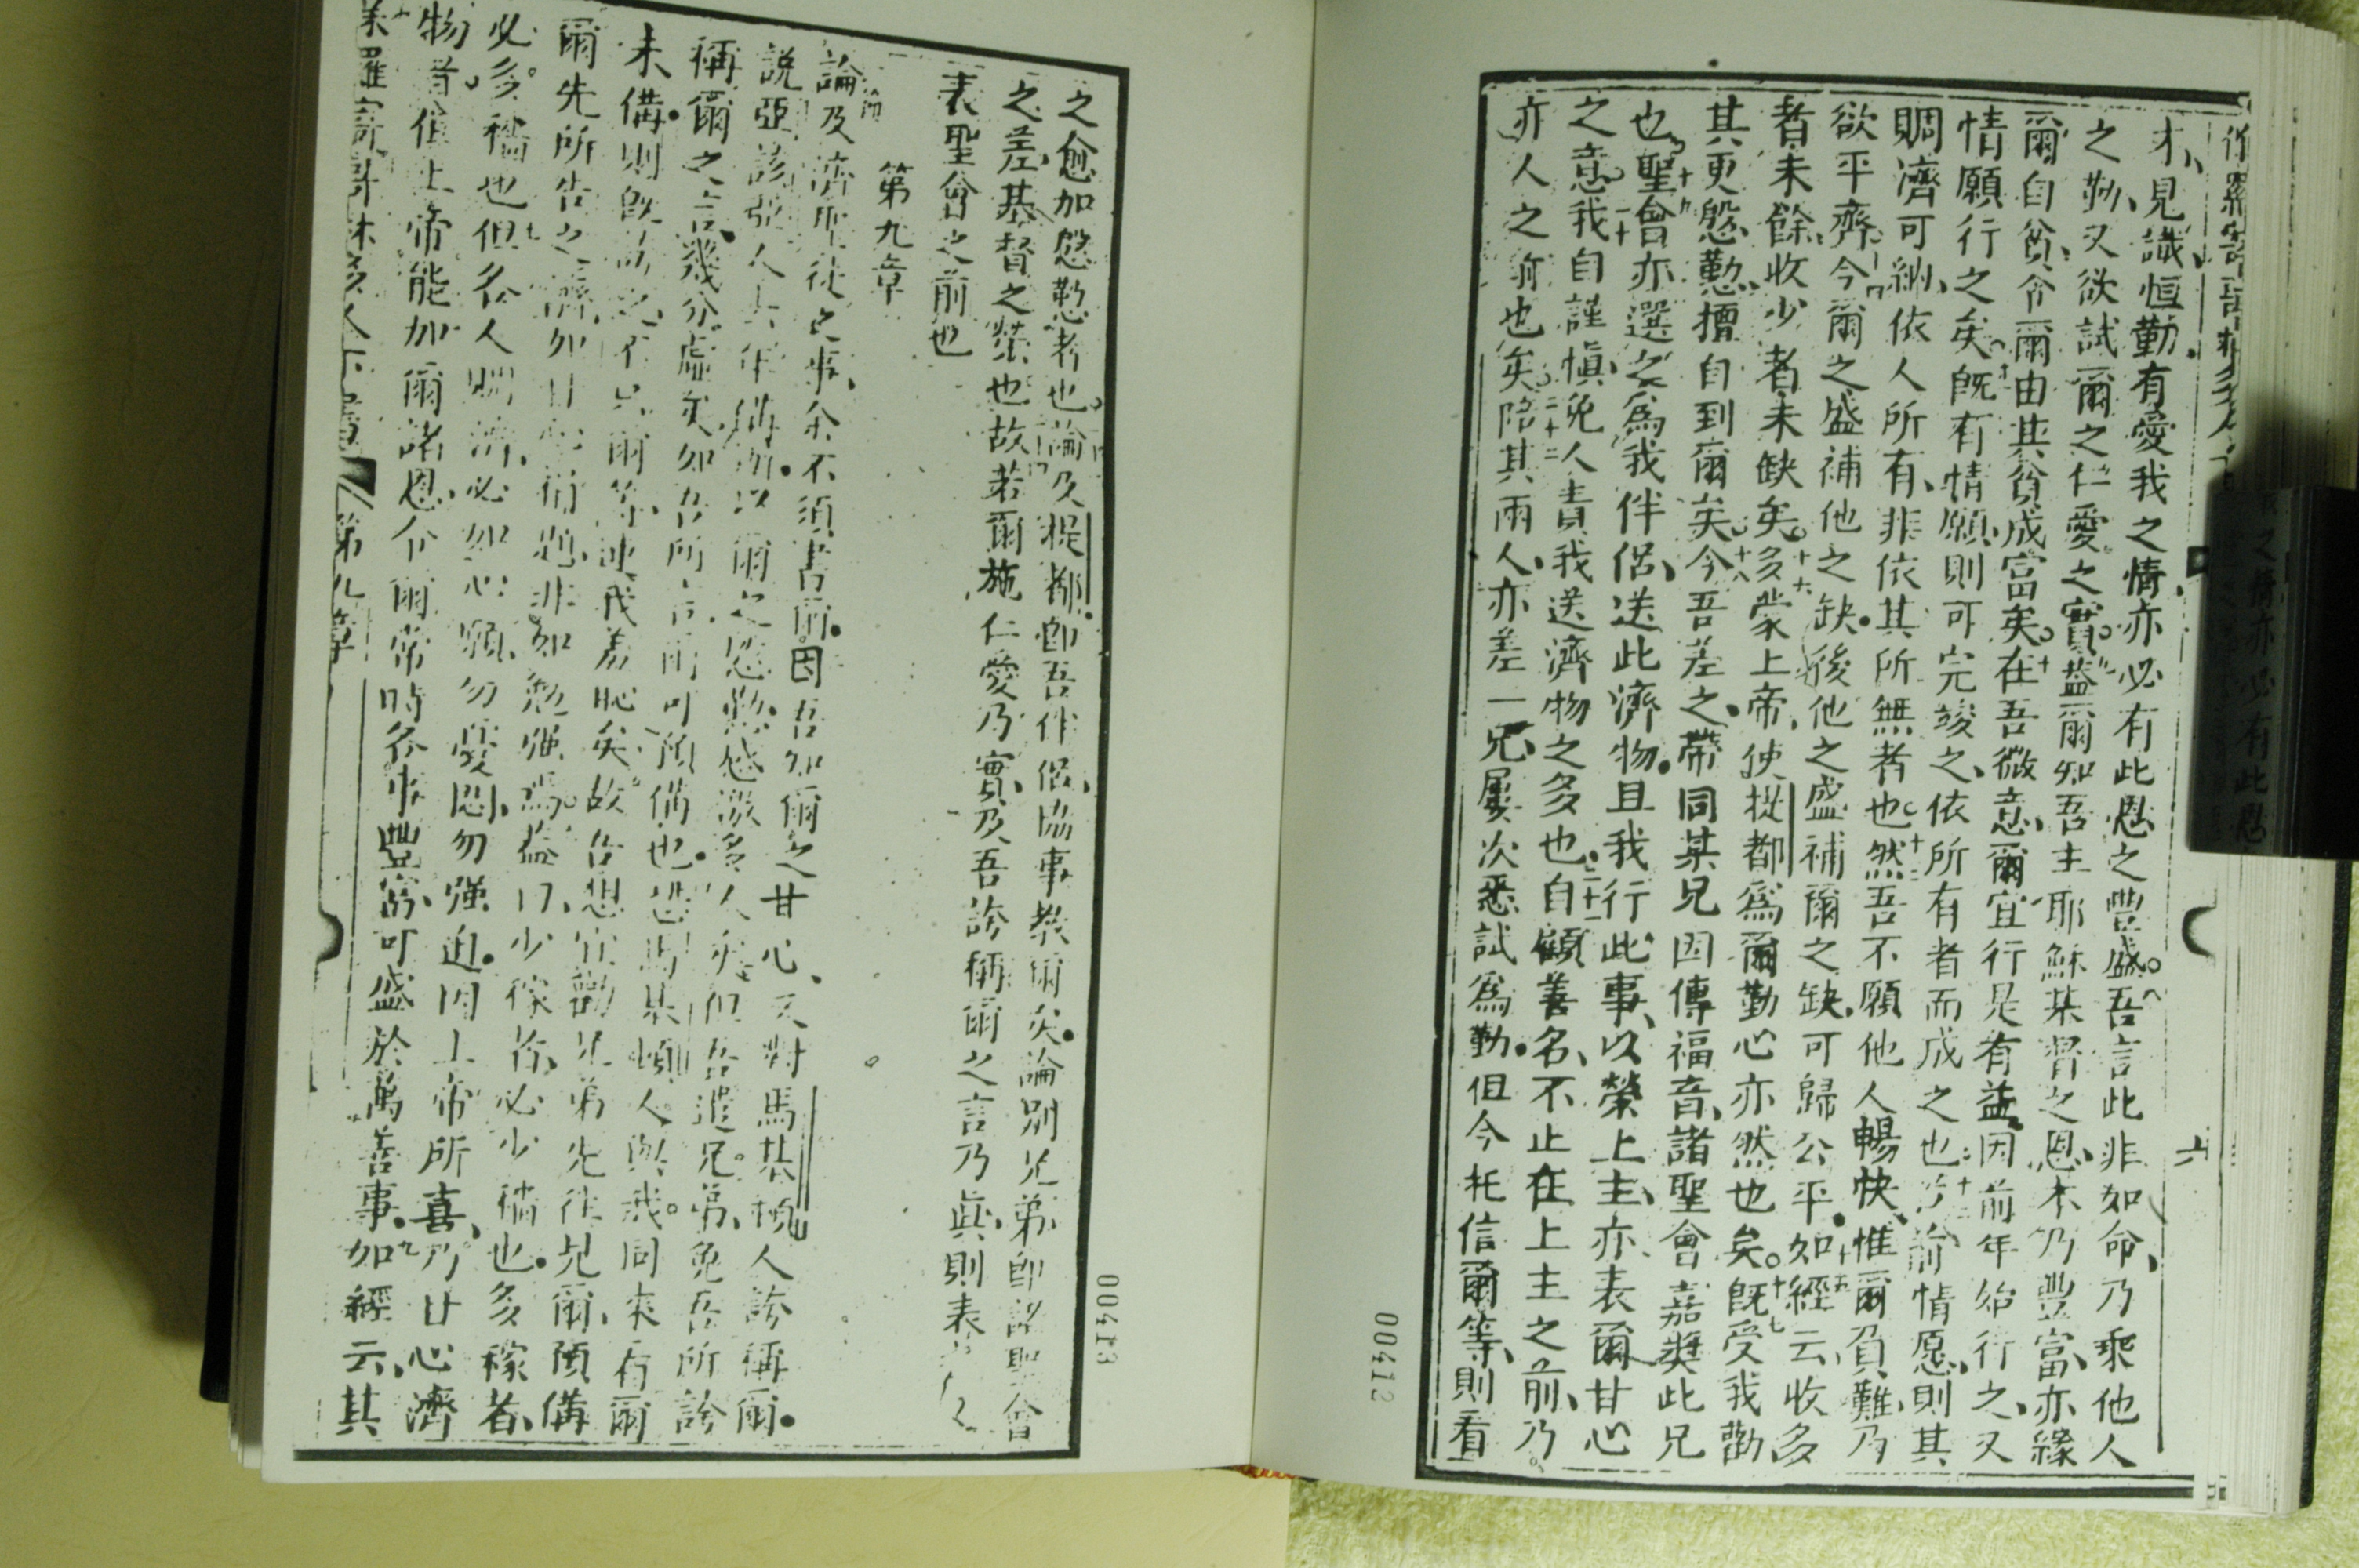 才、見識、恒勤、有愛我之情、亦必有此恩之豐盛。八吾言此非如命、乃乘他人
之勤、又欲試爾之仁愛之實。九蓋爾知吾主耶穌基督之恩、本乃豐富、亦緣
爾自貧、令爾由其貧成富矣。十在吾微意、爾宜行是有益、因前年始行之、又
情願行之矣。十一既有情願、則可完竣之、依所有者而成之也。十二前情愿、則其
賙濟可納、依人所有、非依其所無者也。十三然吾不願他人暢快、惟爾負難、乃
欲平齊。十四今爾之盛補他之缺、後他之盛補爾之缺、可歸公平。十五如經云、收多
者未餘、收少者未缺矣。十六多蒙上帝、使提都爲爾勤心亦然也矣。十七旣受我勸
其更慇懃、擅自到爾矣。十八今吾差之、帶同某兄因傳福音、諸聖會嘉奬此兄
也。十九聖會亦選之爲我伴侶、送此濟物、且我行此事、以榮上主、亦表爾甘心
之意。二十我自謹愼、免人責我送濟物之多也。二十一自顧善名、不止在上主之前、乃
亦人之前也矣。二十二陪其兩人、亦差一兄、屢次悉試爲勤、但今托信爾等、則看
之愈加慇勤者也。論及提都、卽吾伴侶、協事教爾矣、論別兄弟、卽諸聖會
之差、基督之榮也故若爾施仁愛乃實、及吾誇稱爾之言乃眞、則表
表聖會之前也
第九章
論及濟聖徒之事、余不須書爾、因吾知爾之甘心、又對馬基頓人誇稱爾、
說亞該亞人去年備辦、以爾之慇懃感激多人矣、但吾遣兄弟、免吾所誇
稱爾之言幾分虛矣、如吾所言爾可預備也、恐馬基頓人與我同來、看爾
未備、則旣訪之、不只爾等、連我羞恥矣。故吾想宜勸兄弟先往見爾、預備
爾先所告之濟、如甘心捐題、非如勉强焉。蓋曰、少稼者、必少穡也、多稼者、
必多穡也、但各人賙濟、必如心願、勿憂悶、勿强廹、因上帝所喜、乃甘心濟
物者、值上帝能加爾諸恩、令爾常時各事豐富、可盛於萬善事、如經云、其
第九章
六
00413
00412